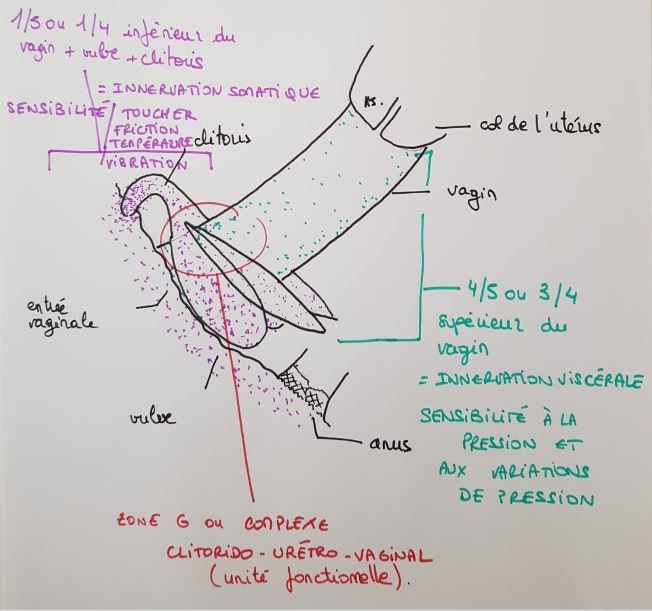 1/5 ou 1/4 inférieur du
vagin + vulve + clitoris
= INNERVATION SOMATIQUE
SENSIBILITÉ
TOUCHER
FRICTION
TEMPÉRATURE
VIBRATION
clitoris
col de l'utérus
vagin
entrée
vaginale
4/5 ou 3/4
supérieur du
vagin
= INNERVATION VISCÉRALE
SENSIBILITÉ À LA
PRESSION ET
AUX VARIATIONS
DE PRESSION
vulve
anus
ZONE G OU COMPLEXE
CLITORIDO-URÉTRO-VAGINAL
(unité fonctionelle).